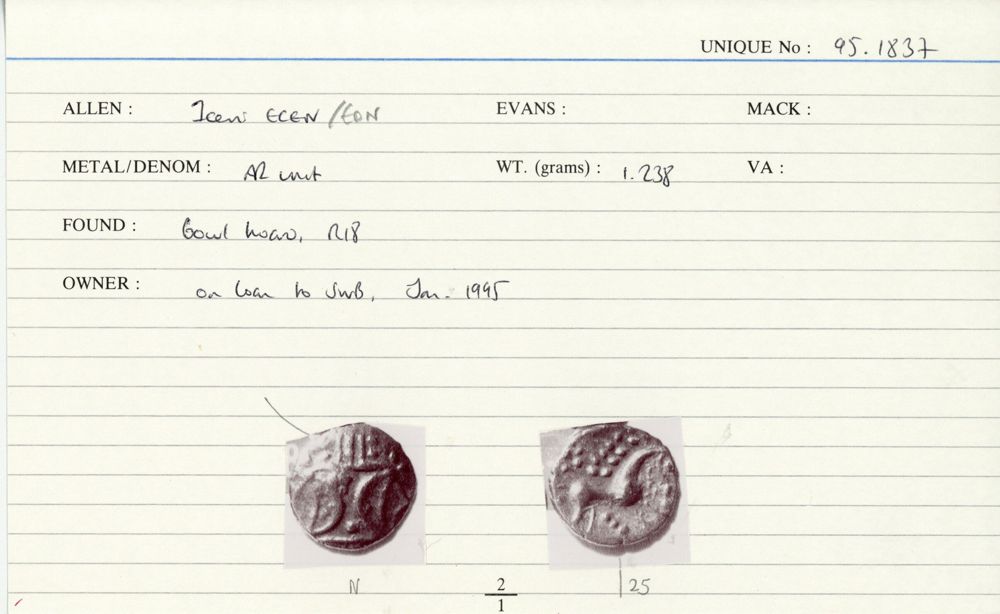 UNIQUE No : 95.1837
ALLEN : Iceni ECEN /EDN EVANS : MACK :
METAL/DENOM : AR unit WT. (grams) : 1.238 VA :
FOUND : Bowl hoard, R18
OWNER : on loan to SWB, Jan. 1995
N 2 25
1